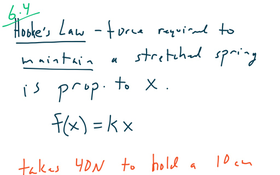 6.4
Hooke's Law - force required to
maintain a stretched spring
is prop. to x.
f(x) = kx
takes 40N to hold a 10cm